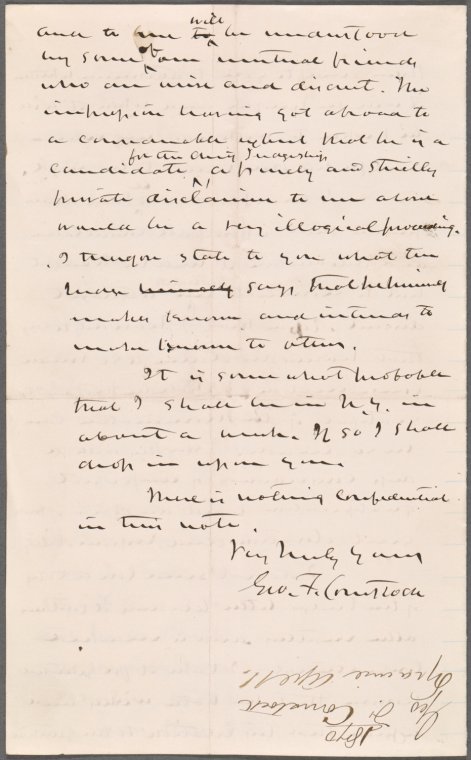 and to me to will be understood
by some of our mutual friends
who are wise and discreet. The
impression having got abroad to
a considerable extent that he is a
candidate for the Chief Judgeship, a purely and strictly
private disclaimer to me alone
would be a very illogical proceeding.
I therefore state to you what the
Judge himself says that he himself
makes known and intends to
make known to others.
It is somewhat probable
that I shall be in N.Y. in
about a week. If so I shall
drop in upon you.
There is nothing confidential
in this note.
Very truly yours
Geo. F. Comstock
Geo F. Comstock
1870